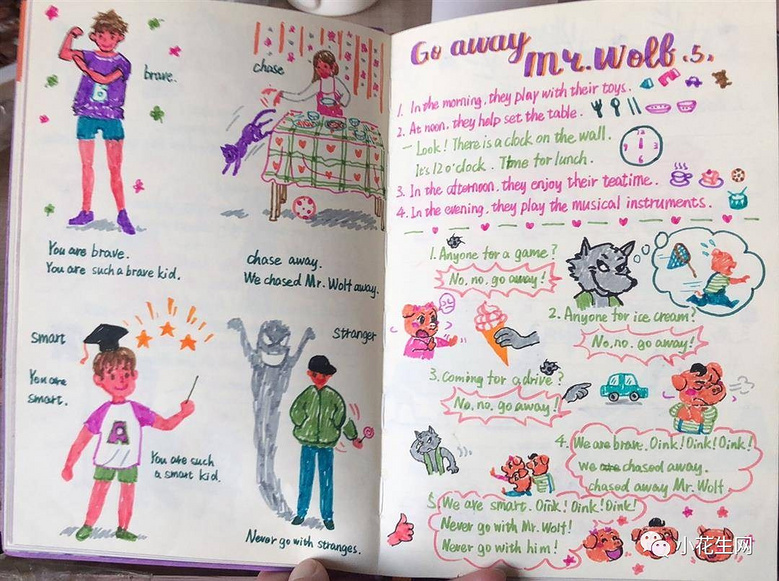 brave.
You are brave.
You are such a brave kid.
chase
chase away.
We chased Mr. Wolt away.
smart
You are
smart.
You are such
a smart kid.
A
Stranger
Never go with stranges.
Go away
Mr. Wolb .5.
1. In the morning, they play with their toys.
2. At noon, they help set the table.
- Look! There is a clock on the wall.
It's 12 o'clock. Time for lunch.
3. In the afternoon, they enjoy their teatime.
4. In the evening, they play the musical instruments.
1. Anyone for a game?
No, no, go away!
2. Anyone for ice cream?
No, no, go away!
3. Coming for a drive?
No, no, go away!
4. We are brave. Oink! Oink! Oink!
We are chased away.
chased away Mr. Wolt
5. We are smart. Oink! Oink! Oink!
Never go with Mr. Wolt!
Never go with him!
小花生网